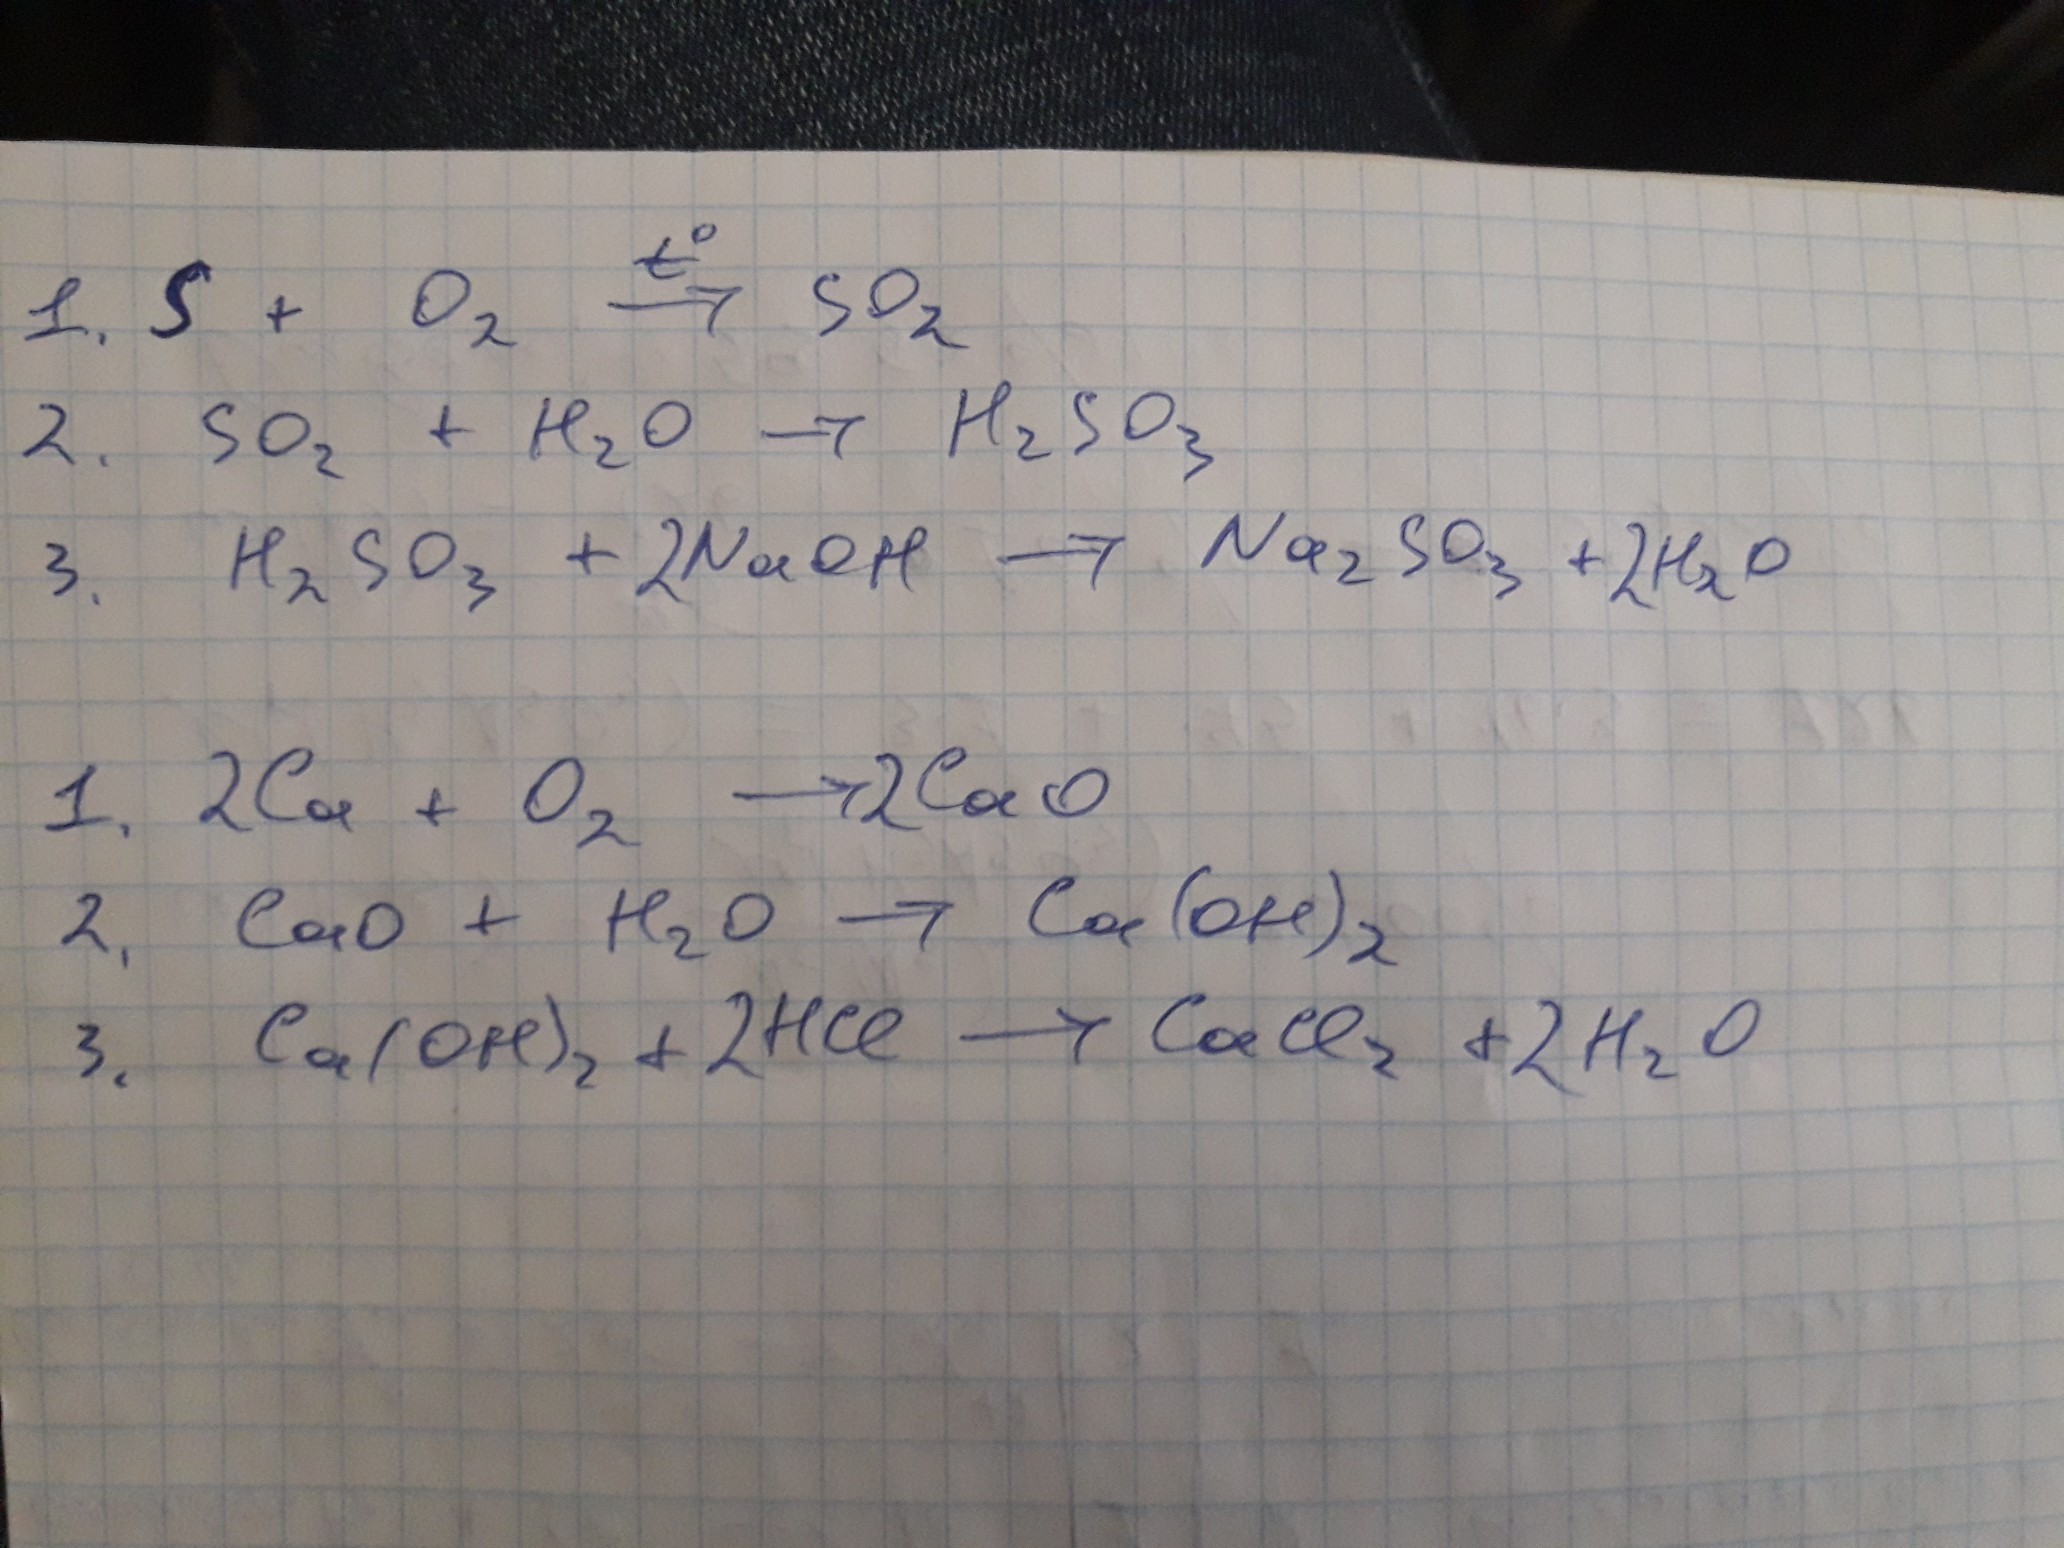 1. S + O₂ →(t°) SO₂
2. SO₂ + H₂O → H₂SO₃
3. H₂SO₃ + 2NaOH → Na₂SO₃ + 2H₂O
1. 2Ca + O₂ → 2CaO
2. CaO + H₂O → Ca(OH)₂
3. Ca(OH)₂ + 2HCl → CaCl₂ + 2H₂O